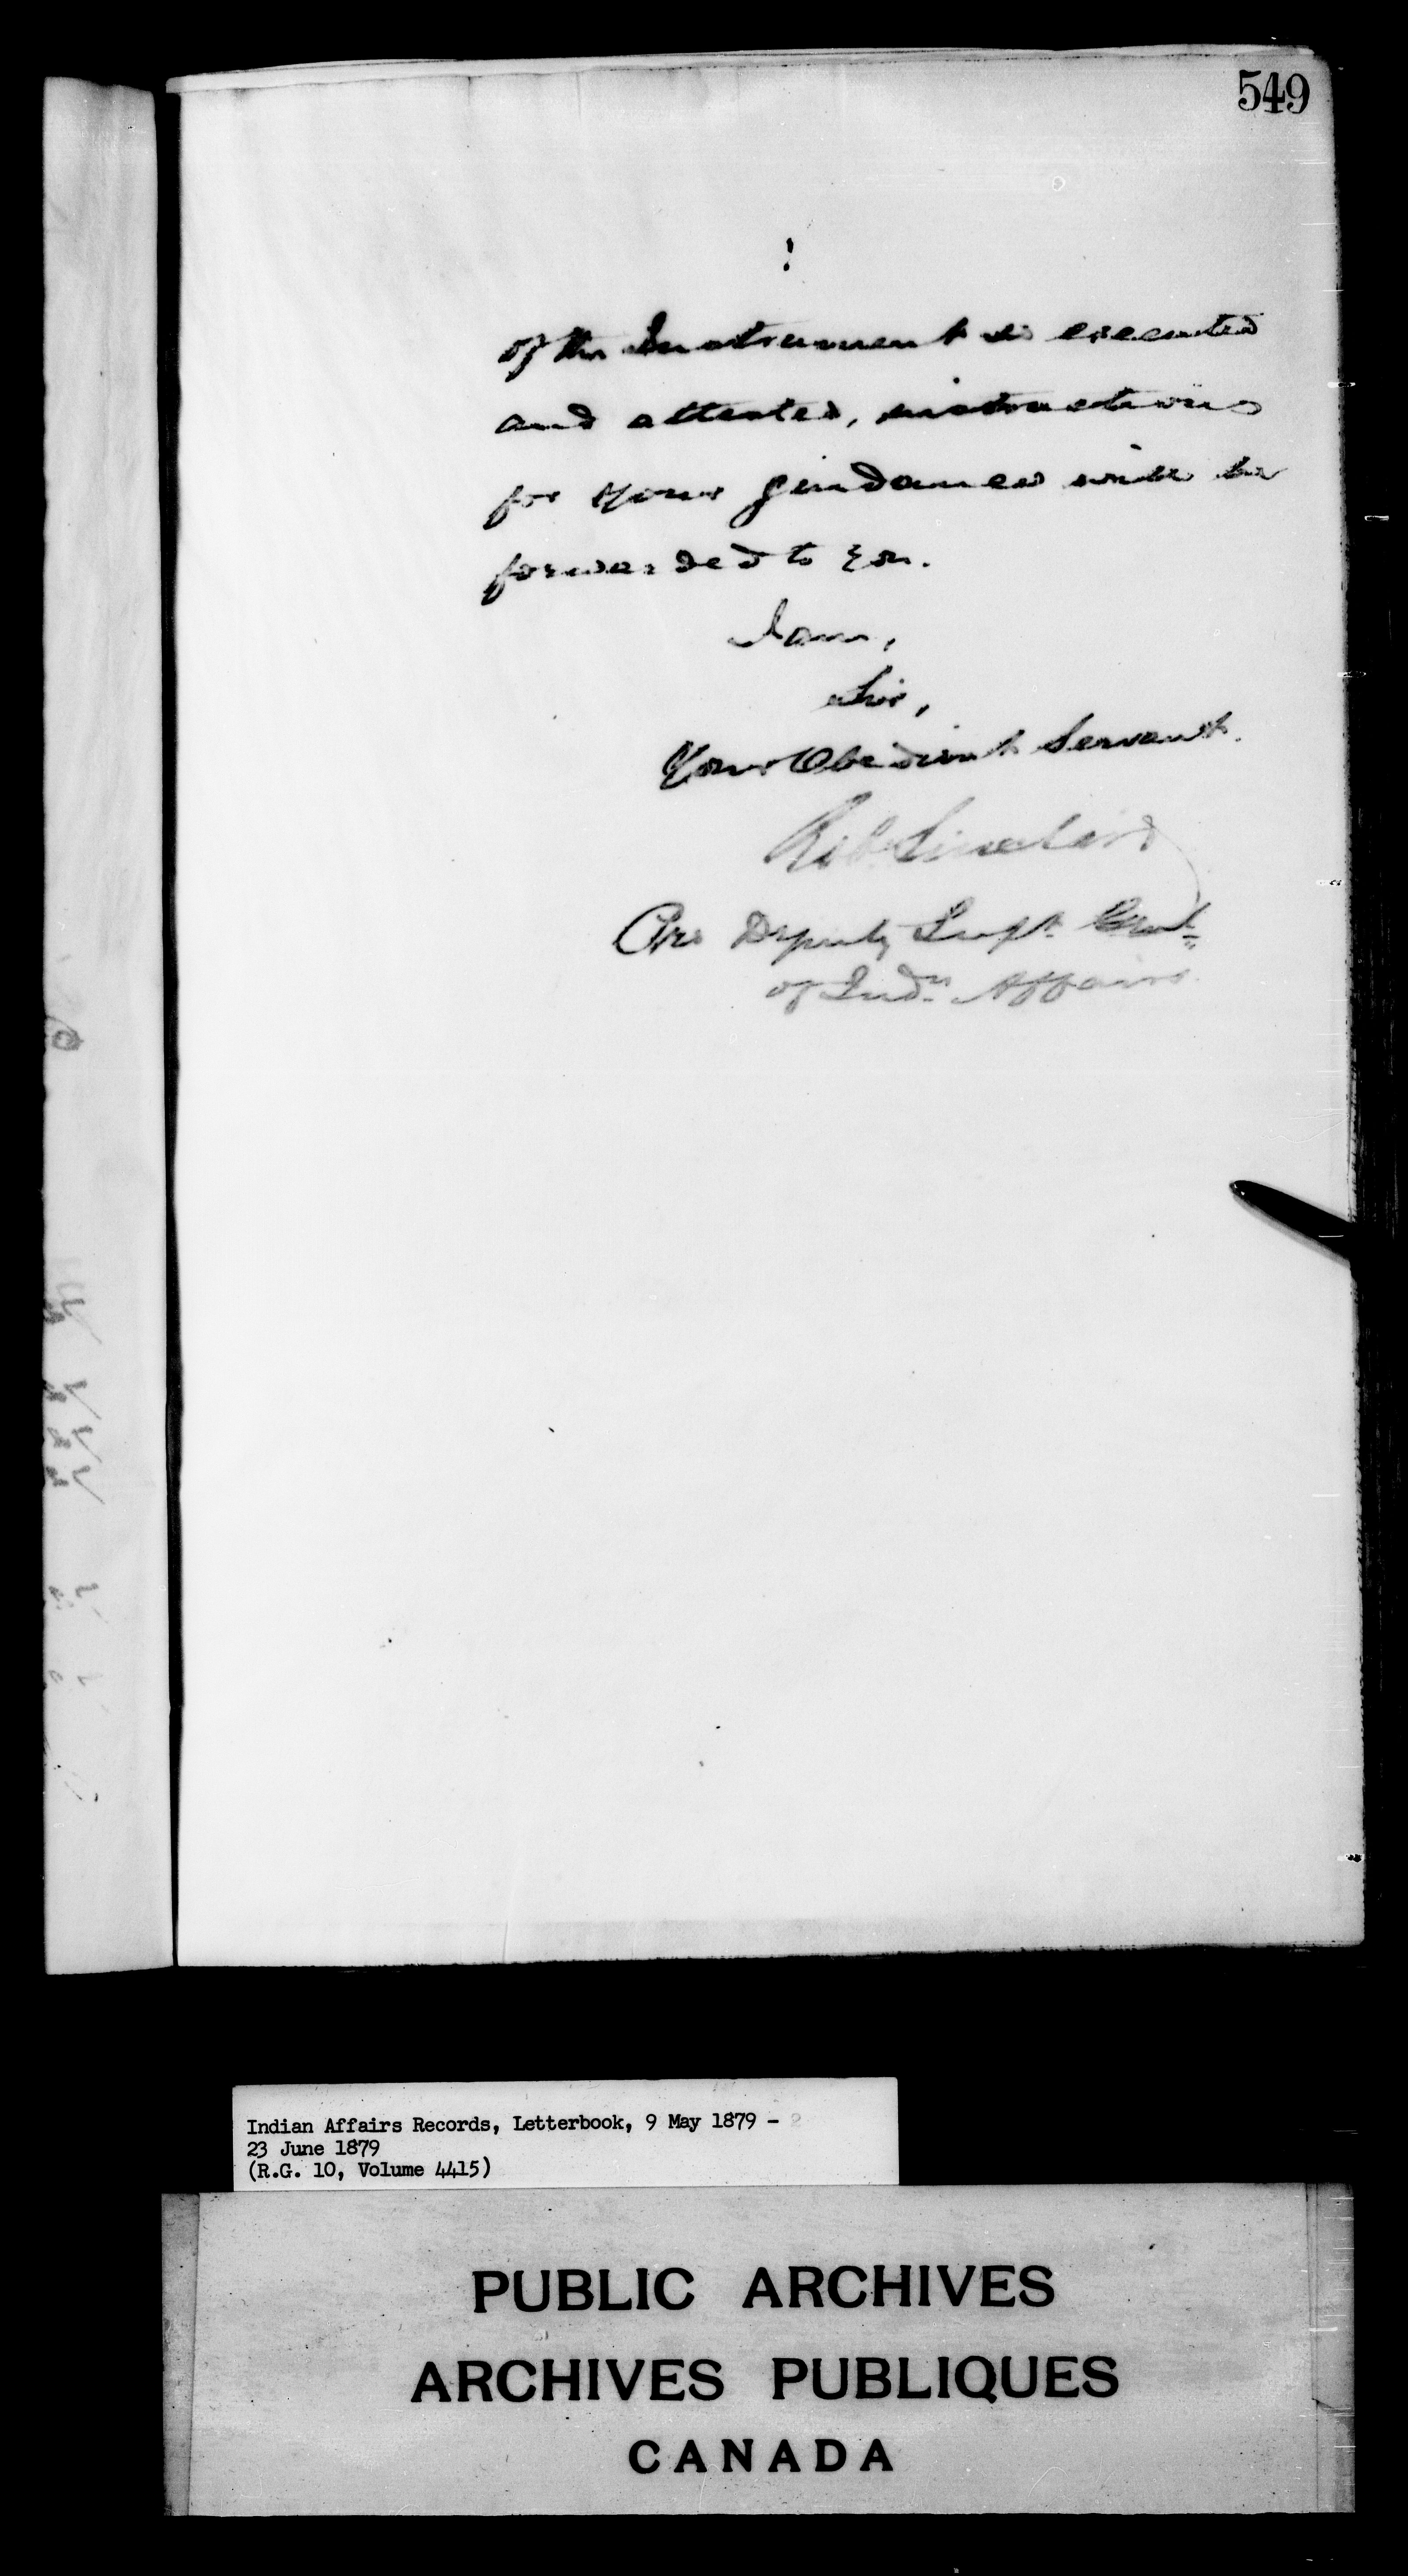 549
of the Instrument so executed
and attested, instructions
for your guidance will be
forwarded to you.
I am,
Sir,
Your Obedient Servant.
Rob Sinclair
Pro Deputy Supt. Genl.
of Indn. Affairs.
Indian Affairs Records, Letterbook, 9 May 1879 -
23 June 1879
(R.G. 10, Volume 4415)
PUBLIC ARCHIVES
ARCHIVES PUBLIQUES
CANADA